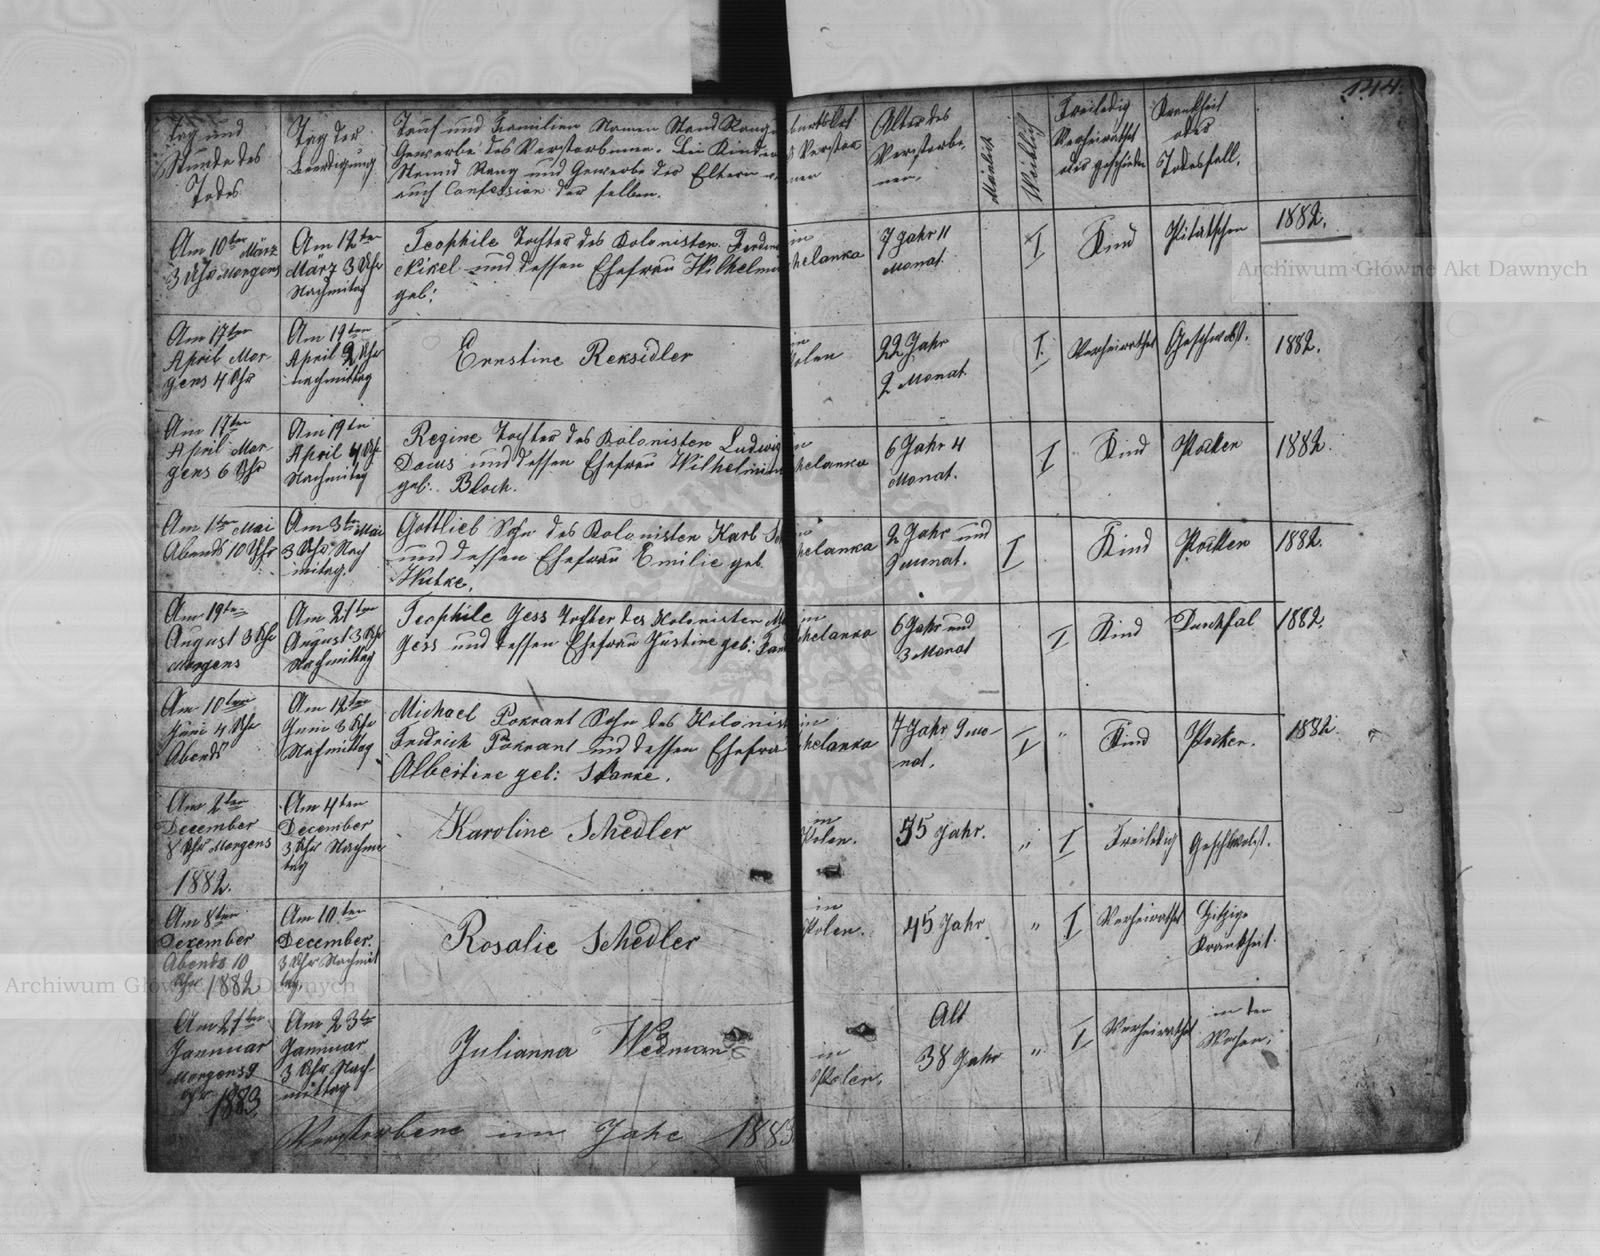 144.
Tag und
Stunde des
Todes
Tag der
Beerdigung
Tauf und Familien Namen Stand Rang
Gewerbe des Verstorbenen. Bei Kinder
Rang und Gewerbe der Eltern
auch Confession der selben.
Alter des
Verstorbe-
nen.
Mänlich
Weiblich
Freiledig
Verheirathet
oder geschieden
Krankheit
oder
Todesfall.
Am 10ten März
3 Uhr Morgens
Am 12ten
März 3 Uhr
Nachmitag
Teophile Tochter des Kolonisten
Nikel und dessen Ehefrau
geb:
in
helanka
7 Jahr 11
Monat
I
Kind
1882.
Am 17ten
April Mor-
gens 4 Uhr
Am 19ten
April 2 Uhr
nachmittag
Ernstine Reksidler
in
Polen
22 Jahr
2 Monat.
I.
Verheirathet
Geschwulst.
1882.
Am 17ten
April Mor-
gens 6 Uhr
Am 19ten
April 4 Uhr
Nachmitag
Regine Tochter des Kolonisten Ludwig
und dessen Ehefrau
geb. Bloch.
in
helanka
6 Jahr 4
Monat.
I
Kind
Pocken
1882.
Am 1ten Mai
Abends 10 Uhr
Am 3ten Mai
3 Uhr Nach
mitag.
Gottlieb Sohn des Kolonisten Karl
und dessen Ehefrau Emilie geb.
Wutke.
in
helanka
2 Jahr und
monat.
I
Kind
Pocken
1882.
Am 19ten
August 3 Uhr
Morgens
Am 21ten
August 3 Uhr
Nachmittag
Teophile Gess Tochter des Kolonisten
Gess und dessen Ehefrau Justine geb:
in
helanka
6 Jahr und
3 Monat
I
Kind
Durchfal
1882.
Am 10ten
Juni 4 Uhr
Abends
Am 12ten
Juni 3 Uhr
Nachmittag
Michael Pokrant Sohn des Kolonist
Fridrich Pokrant und dessen Ehefrau
Albertine geb:
in
helanka
7 Jahr 9 mo-
nat.
I
"
Kind
Pocken.
1882
Am 2ten
December
8 Uhr Morgens
1882.
Am 4ten
December
3 Uhr Nachmi
tag
Karoline Schedler
in
Polen.
55 Jahr.
"
I
Freiledig
Geschwulst.
Am 8ten
Dezember
Abends 10
Uhr 1882
Am 10ten
December.
3 Uhr Nachmit
tag.
Rosalie Schedler
in
Polen.
45 Jahr
"
I
Verheirathet
Hitzige
Krankheit.
Am 21ten
Jannuar
Morgens 9
uhr 1883
Am 23te
Jannuar
3 Uhr Nach-
mittag
Julianna Wedman
in
Polen.
Alt
38 Jahr
"
I
Verheirathet
in den
Wochen.
Verstorbene im Jahr 1883
Archiwum Główne Akt Dawnych
Archiwum Główne Akt Dawnych